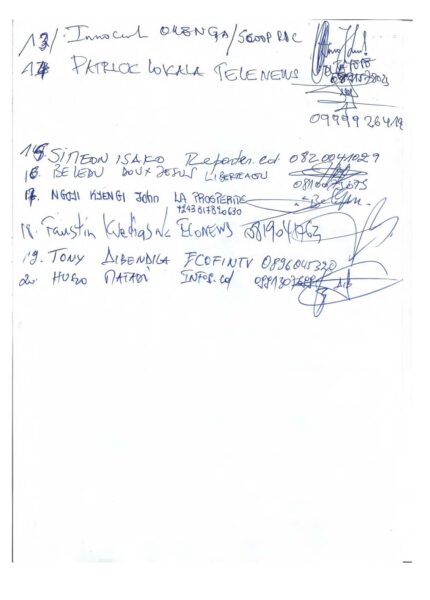 13/. Innocent OLENGA/SCOOP RDC
14 PATRICK LOKALA TELENEWS
0999926419
15 SIMEON ISAKO Reporter.cd 0820041029
16. BELEDU DOUX JESUS LIBERTE
17. NGOJI KYENGI John LA PROSPERITE
+243817890630
18. Faustin ELONEWS
19. TONY DIBENDILA ECOFINTV 0896045320
20. HUGO MATADI INFOS.cd